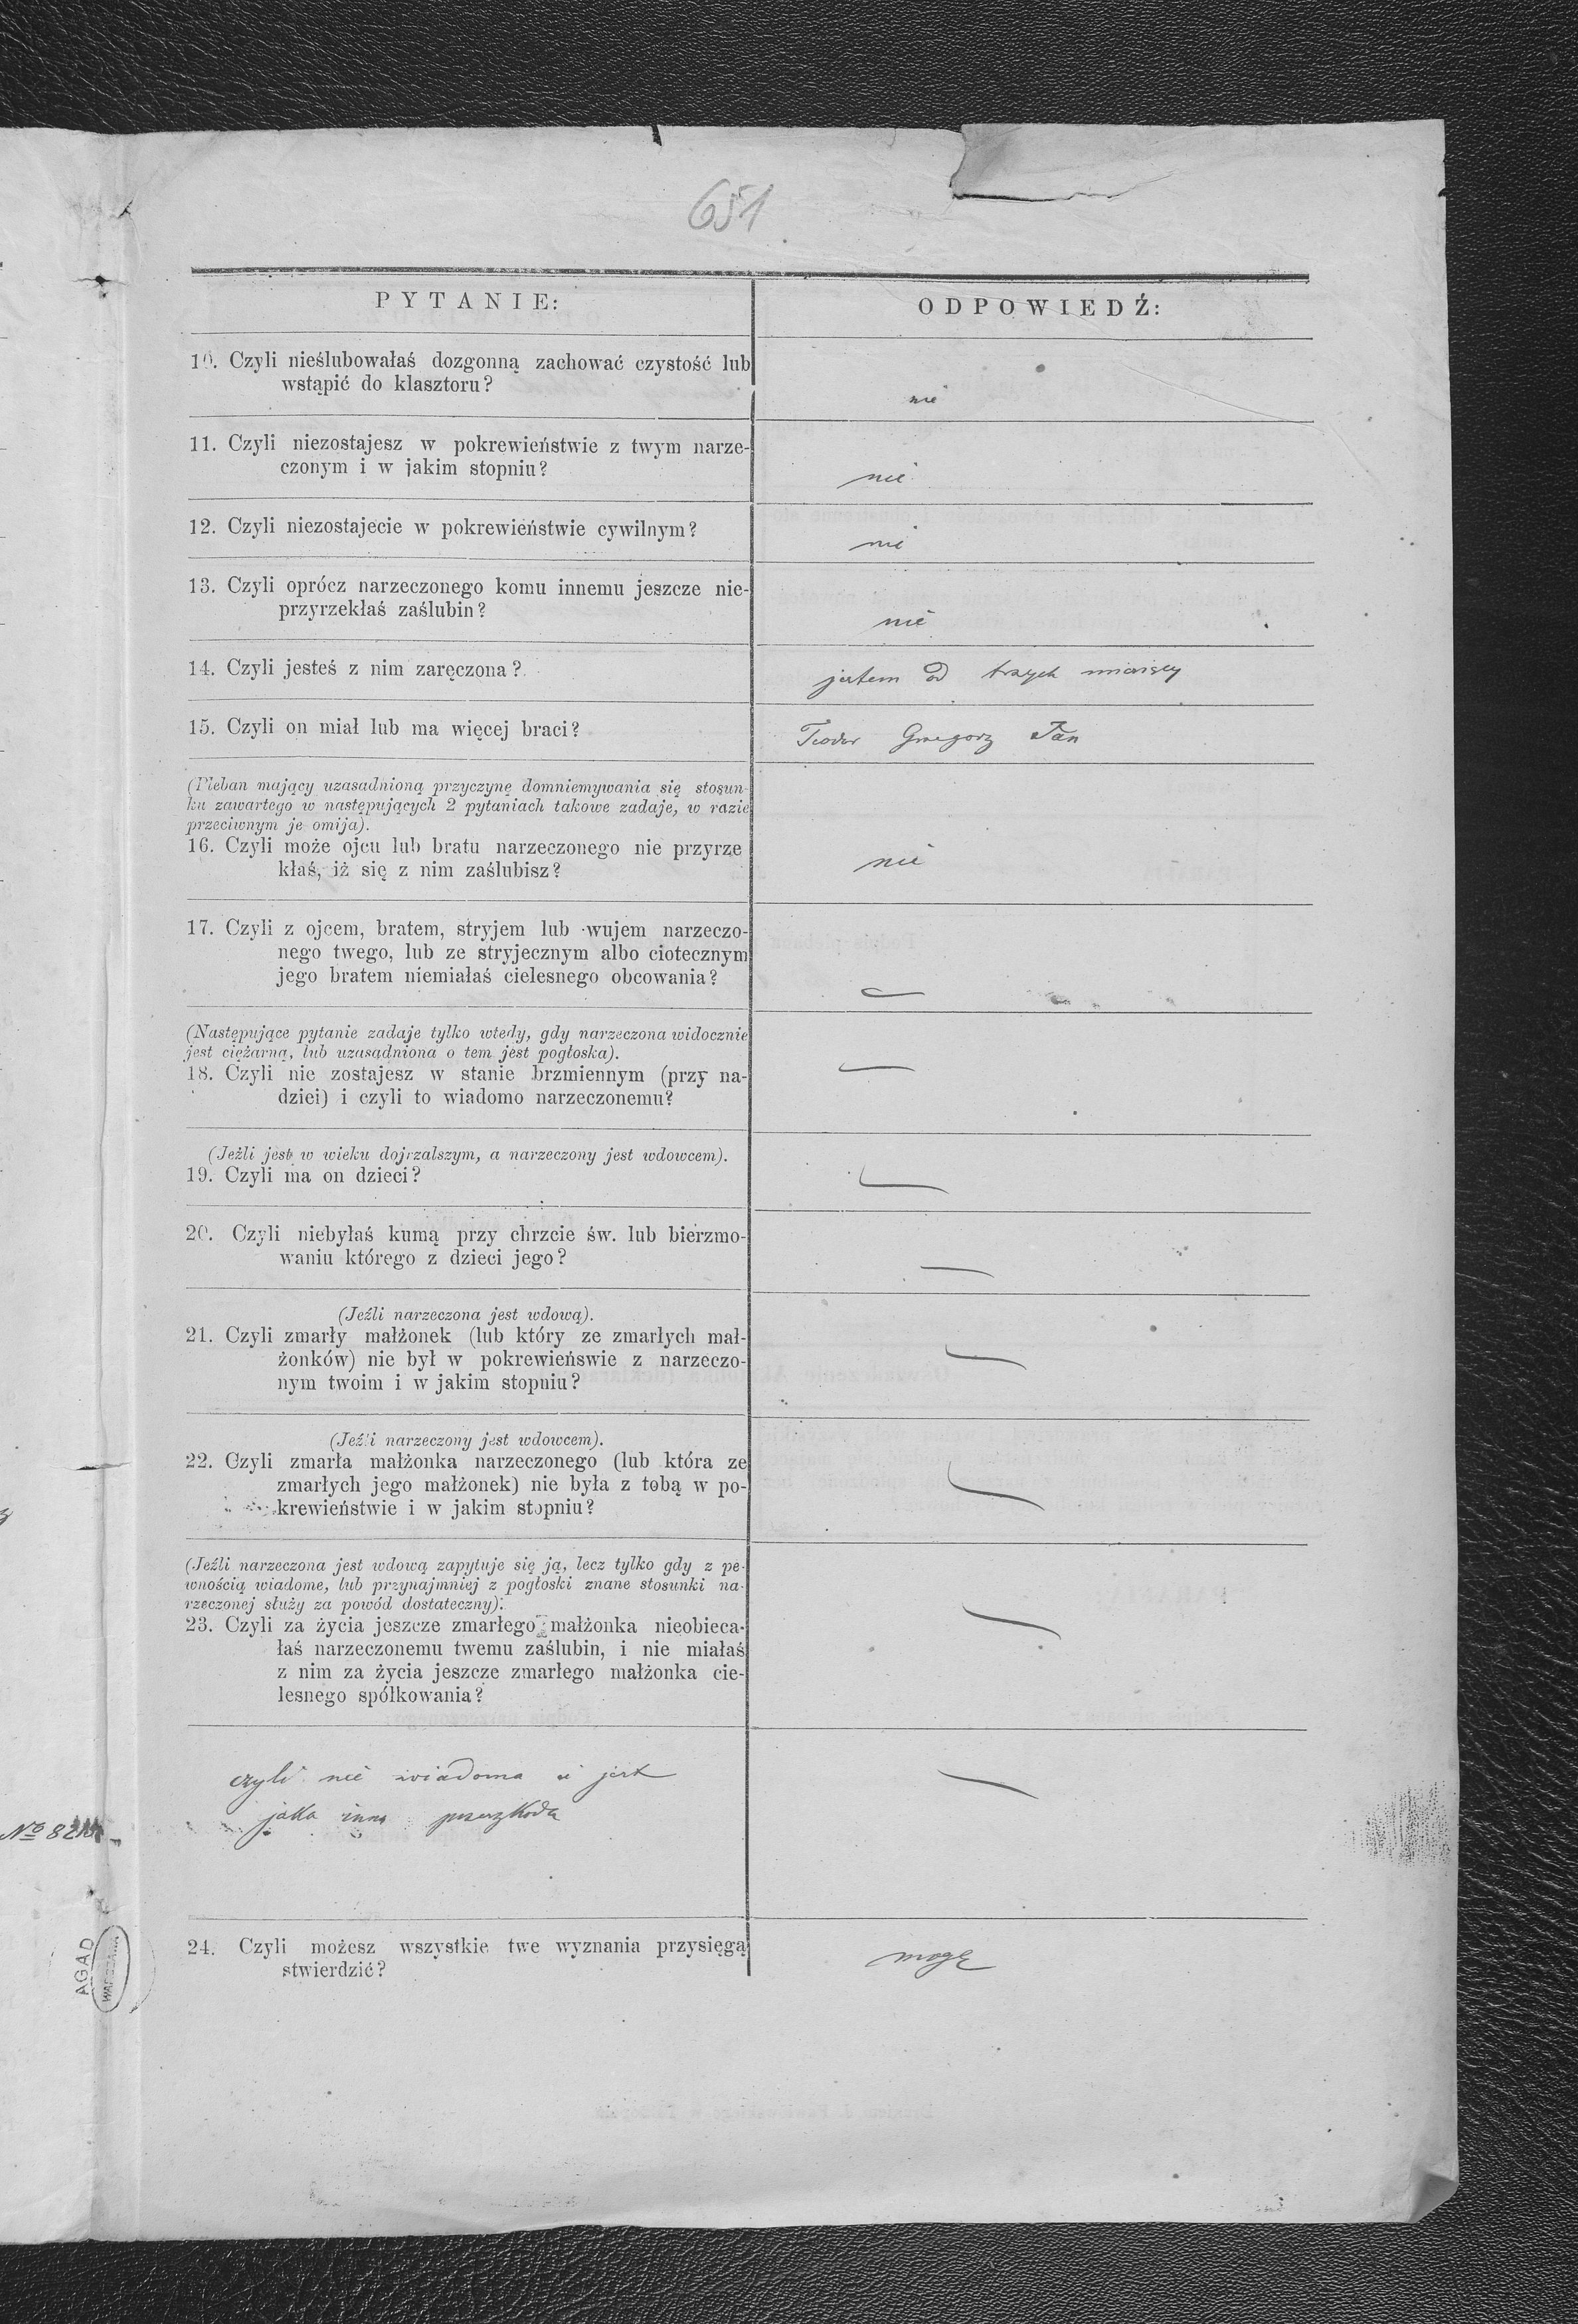 651
PYTANIE:
ODPOWIEDŹ:
10. Czyli nieślubowałaś dozgonną zachować czystość lub
wstąpić do klasztoru?
nie
11. Czyli niezostajesz w pokrewieństwie z twym narze-
czonym i w jakim stopniu?
nie
12. Czyli niezostajecie w pokrewieństwie cywilnym?
nie
13. Czyli oprócz narzeczonego komu innemu jeszcze nie-
przyrzekłaś zaślubin?
nie
14. Czyli jesteś z nim zaręczona?
jestem od trzych miesięcy
15. Czyli on miał lub ma więcej braci?
Teodor Grzegorz Jan
(Pleban mający uzasadnioną przyczynę domniemywania się stosun-
ku zawartego w następujących 2 pytaniach takowe zadaje, w razie
przeciwnym je omija).
16. Czyli może ojcu lub bratu narzeczonego nie przyrze
kłaś, iż się z nim zaślubisz?
nie
17. Czyli z ojcem, bratem, stryjem lub wujem narzeczo-
nego twego, lub ze stryjecznym albo ciotecznym
jego bratem niemiałaś cielesnego obcowania?
(Następujące pytanie zadaje tylko wtedy, gdy narzeczona widocznie
jest ciężarną, lub uzasadniona o tem jest pogłoska).
18. Czyli nie zostajesz w stanie brzmiennym (przy na-
dziei) i czyli to wiadomo narzeczonemu?
(Jeżli jest w wieku dojrzalszym, a narzeczony jest wdowcem).
19. Czyli ma on dzieci?
20. Czyli niebyłaś kumą przy chrzcie św. lub bierzmo-
waniu którego z dzieci jego?
(Jeźli narzeczona jest wdową).
21. Czyli zmarły małżonek (lub który ze zmarłych mał-
żonków) nie był w pokrewieńswie z narzeczo-
nym twoim i w jakim stopniu?
(Jeźli narzeczony jest wdowcem).
22. Czyli zmarła małżonka narzeczonego (lub która ze
zmarłych jego małżonek) nie była z tobą w po-
krewieństwie i w jakim stopniu?
(Jeźli narzeczona jest wdową zapytuje się ją, lecz tylko gdy z pe-
wnością wiadome, lub przynajmniej z pogłoski znane stosunki na-
rzeczonej służy za powód dostateczny).
23. Czyli za życia jeszcze zmarłego małżonka nieobieca-
łaś narzeczonemu twemu zaślubin, i nie miałaś
z nim za życia jeszcze zmarłego małżonka cie-
lesnego spółkowania?
czyli nie wiadoma ci jest
jaka inna przeszkoda
24. Czyli możesz wszystkie twe wyznania przysięgą
stwierdzić?
mogę
AGAD
WARSZAWA